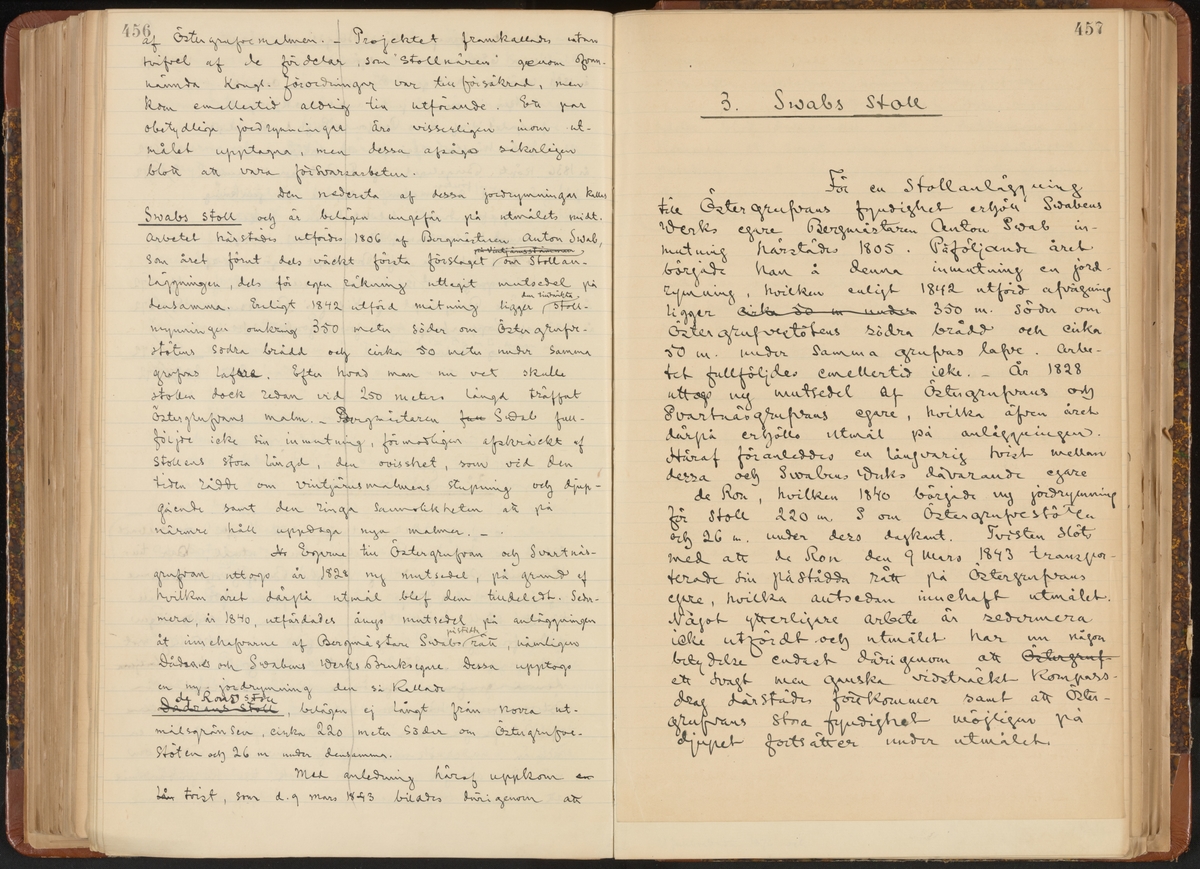 456
af Östergrufvemalmen. – Projektet framkallades utan
tvifvel af de fördelar, som "Stollnären" genom ofvan-
nämnda Kongl. förordningar var tillförsäkrad, men
kom emellertid aldrig till utförande. Ett par
obetydliga jordrymningar äro visserligen inom ut-
målet upptagna, men dessa afsågo säkerligen
blott att vara försvarsarbeten.
Den nedersta af dessa jordrymningar kallas
Swabs stoll och är belägen ungefär på utmålets midt.
Arbetet härstädes utfördes 1806 af Bergmästaren Anton Swab,
som året förut dels väckt första förslaget om Stollan-
läggningen, dels för egen räkning uttagit mutsedel på
densamma. Enligt 1842 utförd mätning ligger den inridtade stoll-
mynningen omkring 350 meter söder om Östergrufve-
stötens södra brädd och cirka 50 meter under samma
grufvas lafve. Efter hvad man nu vet skulle
stollen dock redan vid 250 meters längd träffat
Östergrufvans malm. – Bergmästaren Swab full-
följde icke sin inmutning, förmodligen afskräckt af
Stollens stora längd, den ovisshet, som vid den
tiden rådde om vintjärnsmalmens stupning och djup-
gående samt den ringa sannolikheten att på
närmre håll upptäga nya malmer. –
Egarne till Östergrufvan och Svartnäs-
grufvan uttogo år 1828 ny mutsedel, på grund af
hvilken året därpå utmål blef dem tilldeladt. Seder-
mera, år 1840, utfärdades ånyo mutsedel på anläggningen
åt innehafvarne af Bergmästare Swabs påstådda rätt, nämligen
Dådrans och Swabens Werks Bruksegare. Dessa upptogo
en ny jordrymning den så kallade
de Rons stoll
Dådrans Stoll, belägen ej långt från norra ut-
målsgränsen, cirka 220 meter söder om Östergrufve-
stöten och 26 m under densamma.
Med anledning häraf uppkom en
tvist, som d. 9 mars 1843 bilades därigenom att
457
3. Swabs Stoll
För en Stollanläggning
till Östergrufvans fyndighet erhöll Swabens
Werks egare Bergmästaren Anton Swab in-
mutning härstädes 1805. Påföljande året
började han å denna inmutning en jord-
rymning, hvilken enligt 1842 utförd afvägning
ligger cirka 50 m under 350 m. söder om
Östergrufvestötens södra brädd och cirka
50 m. under samma grufvas lafve. Arbe-
tet fullföljdes emellertid icke. – År 1828
uttogs ny mutsedel af Östergrufvans och
Svartnäsgrufvans egare, hvilka äfven året
därpå erhöllo utmål på anläggningen.
Häraf föranleddes en långvarig tvist mellan
dessa och Swabens Werks dåvarande egare
de Ron, hvilken 1840 började ny jordrymning
för stoll 220 m. S om Östergrufvestöten
och 26 m. under dess dagkant. Tvisten slöts
med att de Ron den 9 Mars 1843 transpor-
terade sin påstådda rätt på Östergrufvans
egare, hvilka alltsedan innehaft utmålet.
Något ytterligare arbete är sedermera
icke utfördt och utmålet har nu någon
betydelse endast därigenom att Östergruf-
ett svagt men ganska vidsträckt kompass-
drag därstädes förekommer samt att Öster-
grufvans stora fyndighet möjligen på
djupet fortsätter under utmålet.